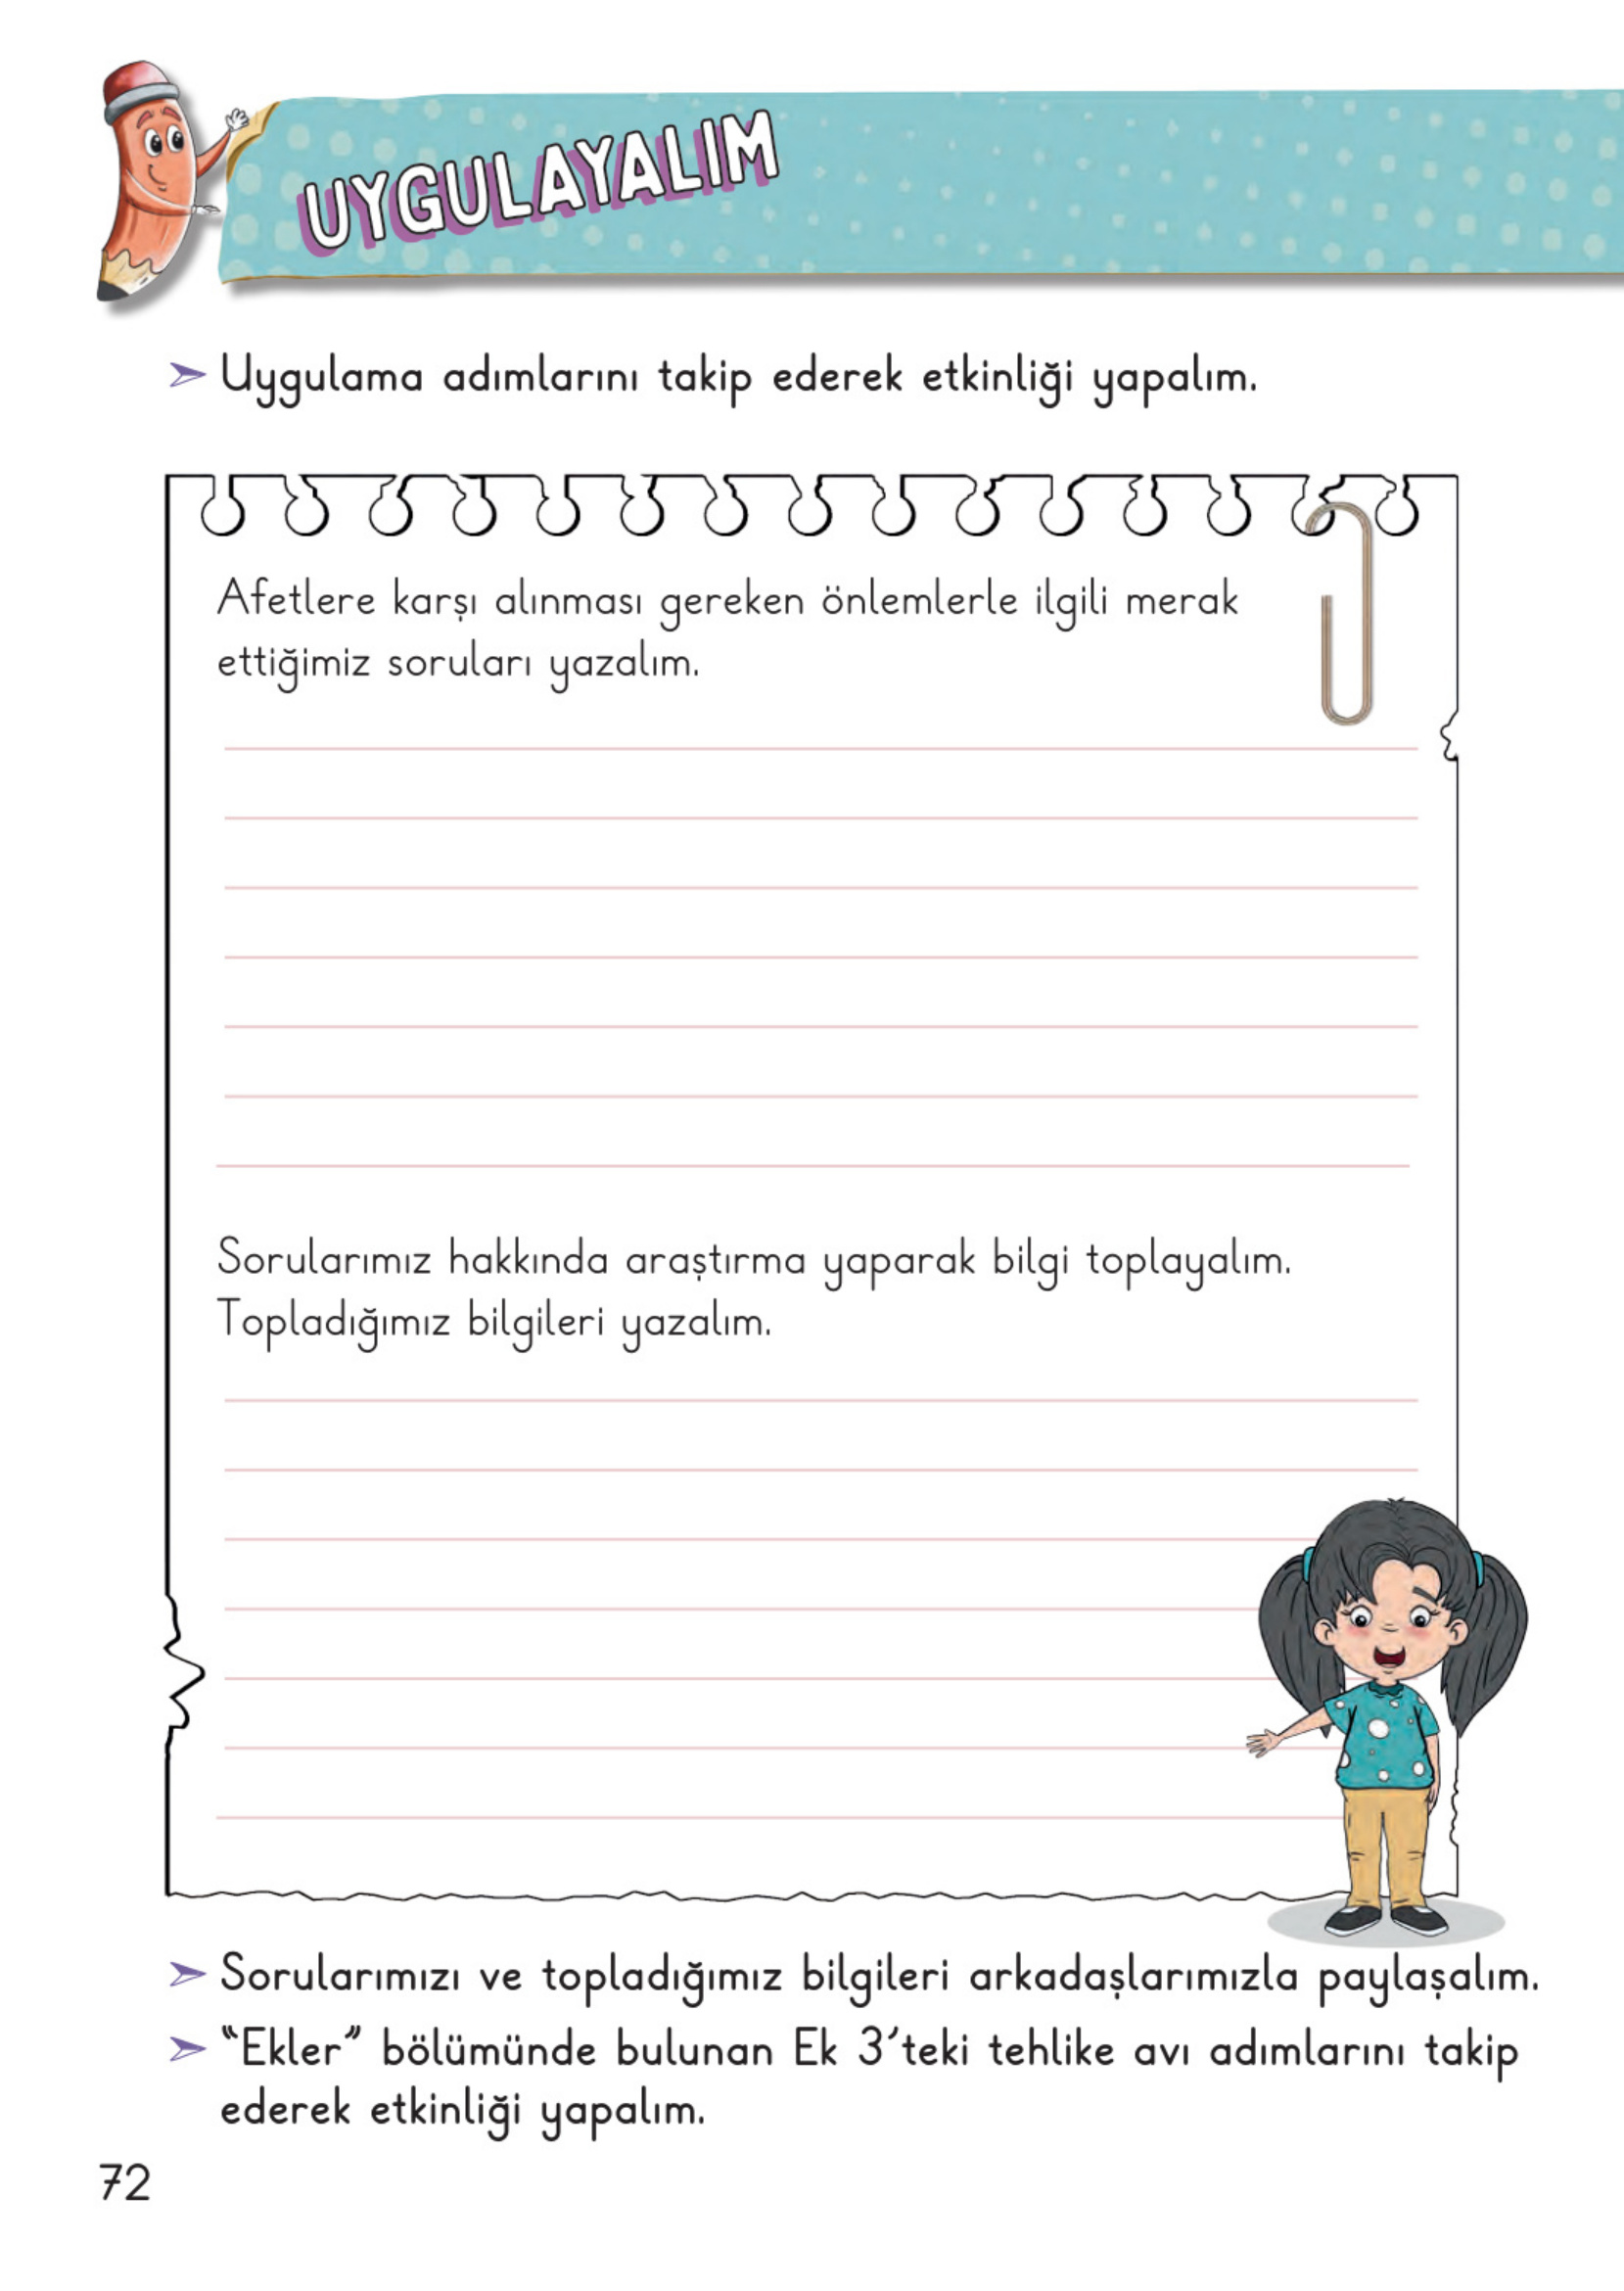 UYGULAYALIM
Uygulama adımlarını takip ederek etkinliği yapalım.
Afetlere karşı alınması gereken önlemlerle ilgili merak
ettiğimiz soruları yazalım.
Sorularımız hakkında araştırma yaparak bilgi toplayalım.
Topladığımız bilgileri yazalım.
Sorularımızı ve topladığımız bilgileri arkadaşlarımızla paylaşalım.
“Ekler” bölümünde bulunan Ek 3’teki tehlike avı adımlarını takip
ederek etkinliği yapalım.
72